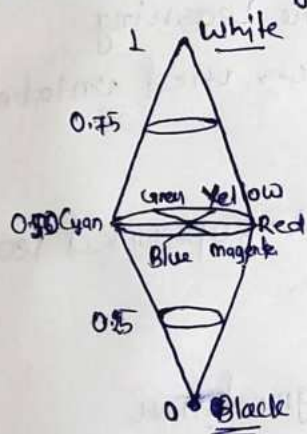 1 White
0.75
Green Yellow
0.50 Cyan Red
Blue magenta
0.25
0 Black